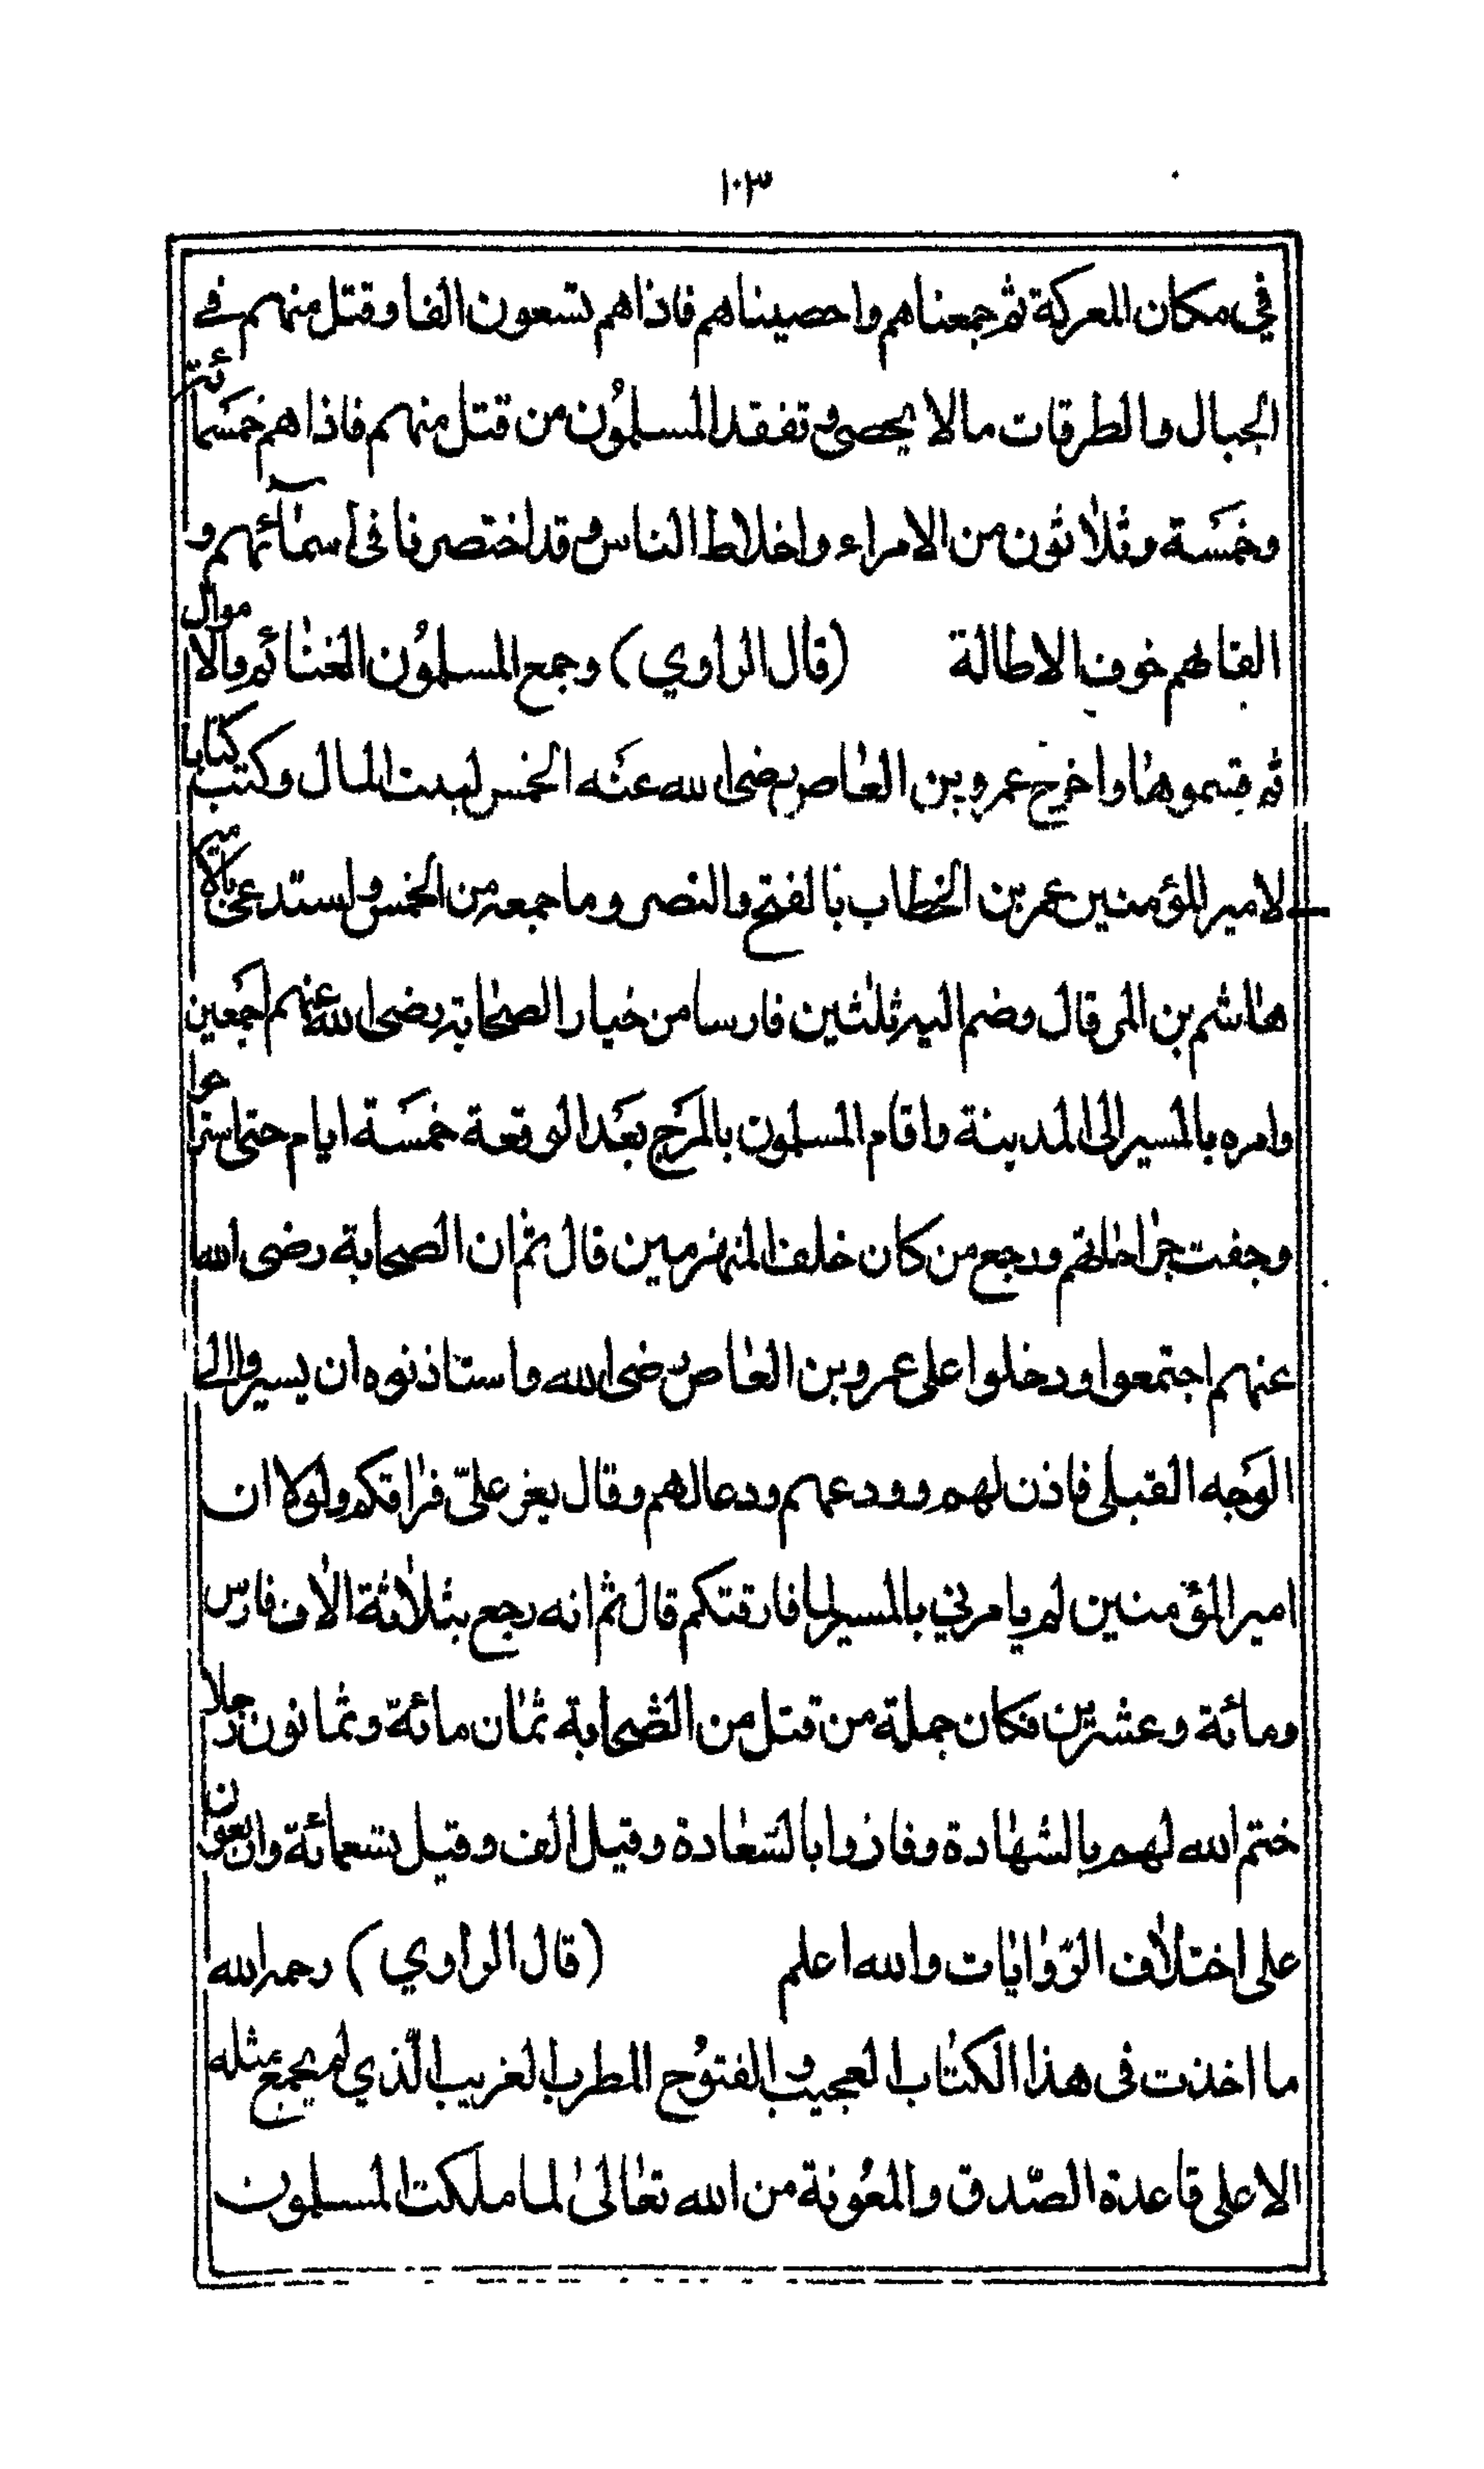 ١٠٣
في مكان المعركة ثم جمعناهم واحصيناهم فاذاهم تسعون الفا وقتل منهم في
الجبال والطرقات مالا يحصى وتفقد المسلمُون من قتل منهم فاذاهم خمسَمائة
وخمسَة وثلاثون من الامراء واخلاط الناس وقد اختصرنا في اسمآئهم و
القابهم خوف الاطالة (قال الراوي) وجمع المسلموُن الغنائم والاموال
ثم قسموها واخرج عمرو بن العاص رضى الله عنَه الخمس لبيت المال وكتب كتابا
لامير المؤمنين عمر بن الخطاب بالفتح والنصر وما جمعه من الخمس واستدعى بالامير
هاشم بن المرقال وضم اليه ثلثين فارسا من خيار الصحابة رضى الله عنهم اجمَعين
وامره بالمسير الى المدينة واقام المسلمون بالمرَج بعَد الوقعة خمسَة ايام حتى استراحوا
وجفت جراحاتهم ورجع من كان خلف المنهزمين قال ثم ان الصحابة رضى الله
عنهم اجتمعوا ودخلوا على عمرو بن العاص رضى الله واستاذنوه ان يسيروا الى
الوَجه القبلى فاذن لهم وودعهم ودعالهم وقال يعز علىّ فراقكم ولولا ان
امير المؤمنين لم يامرني بالمسير لما فارقتكم قال ثم انه رجع بثلاثة الاف فارس
ومائة وعشرين فكان جملة من قتل من الصّحابة ثمان مائة وثمانون رجلا
ختم الله لهم بالشهادة وفازوا بالسّعادة وقيل الف وقيل تسعمائة واربعون
على اختلاف الرّوايات والله اعلم (قال الراوي) رحمه الله
ما اخذت فى هذا الكتاب العجيب والفتوُح المطرب الغريب الّذي لم يجمع مثله
الا على قاعدة الصّدق والمعُونة من الله تعالىٰ لما ملكت المسلمون